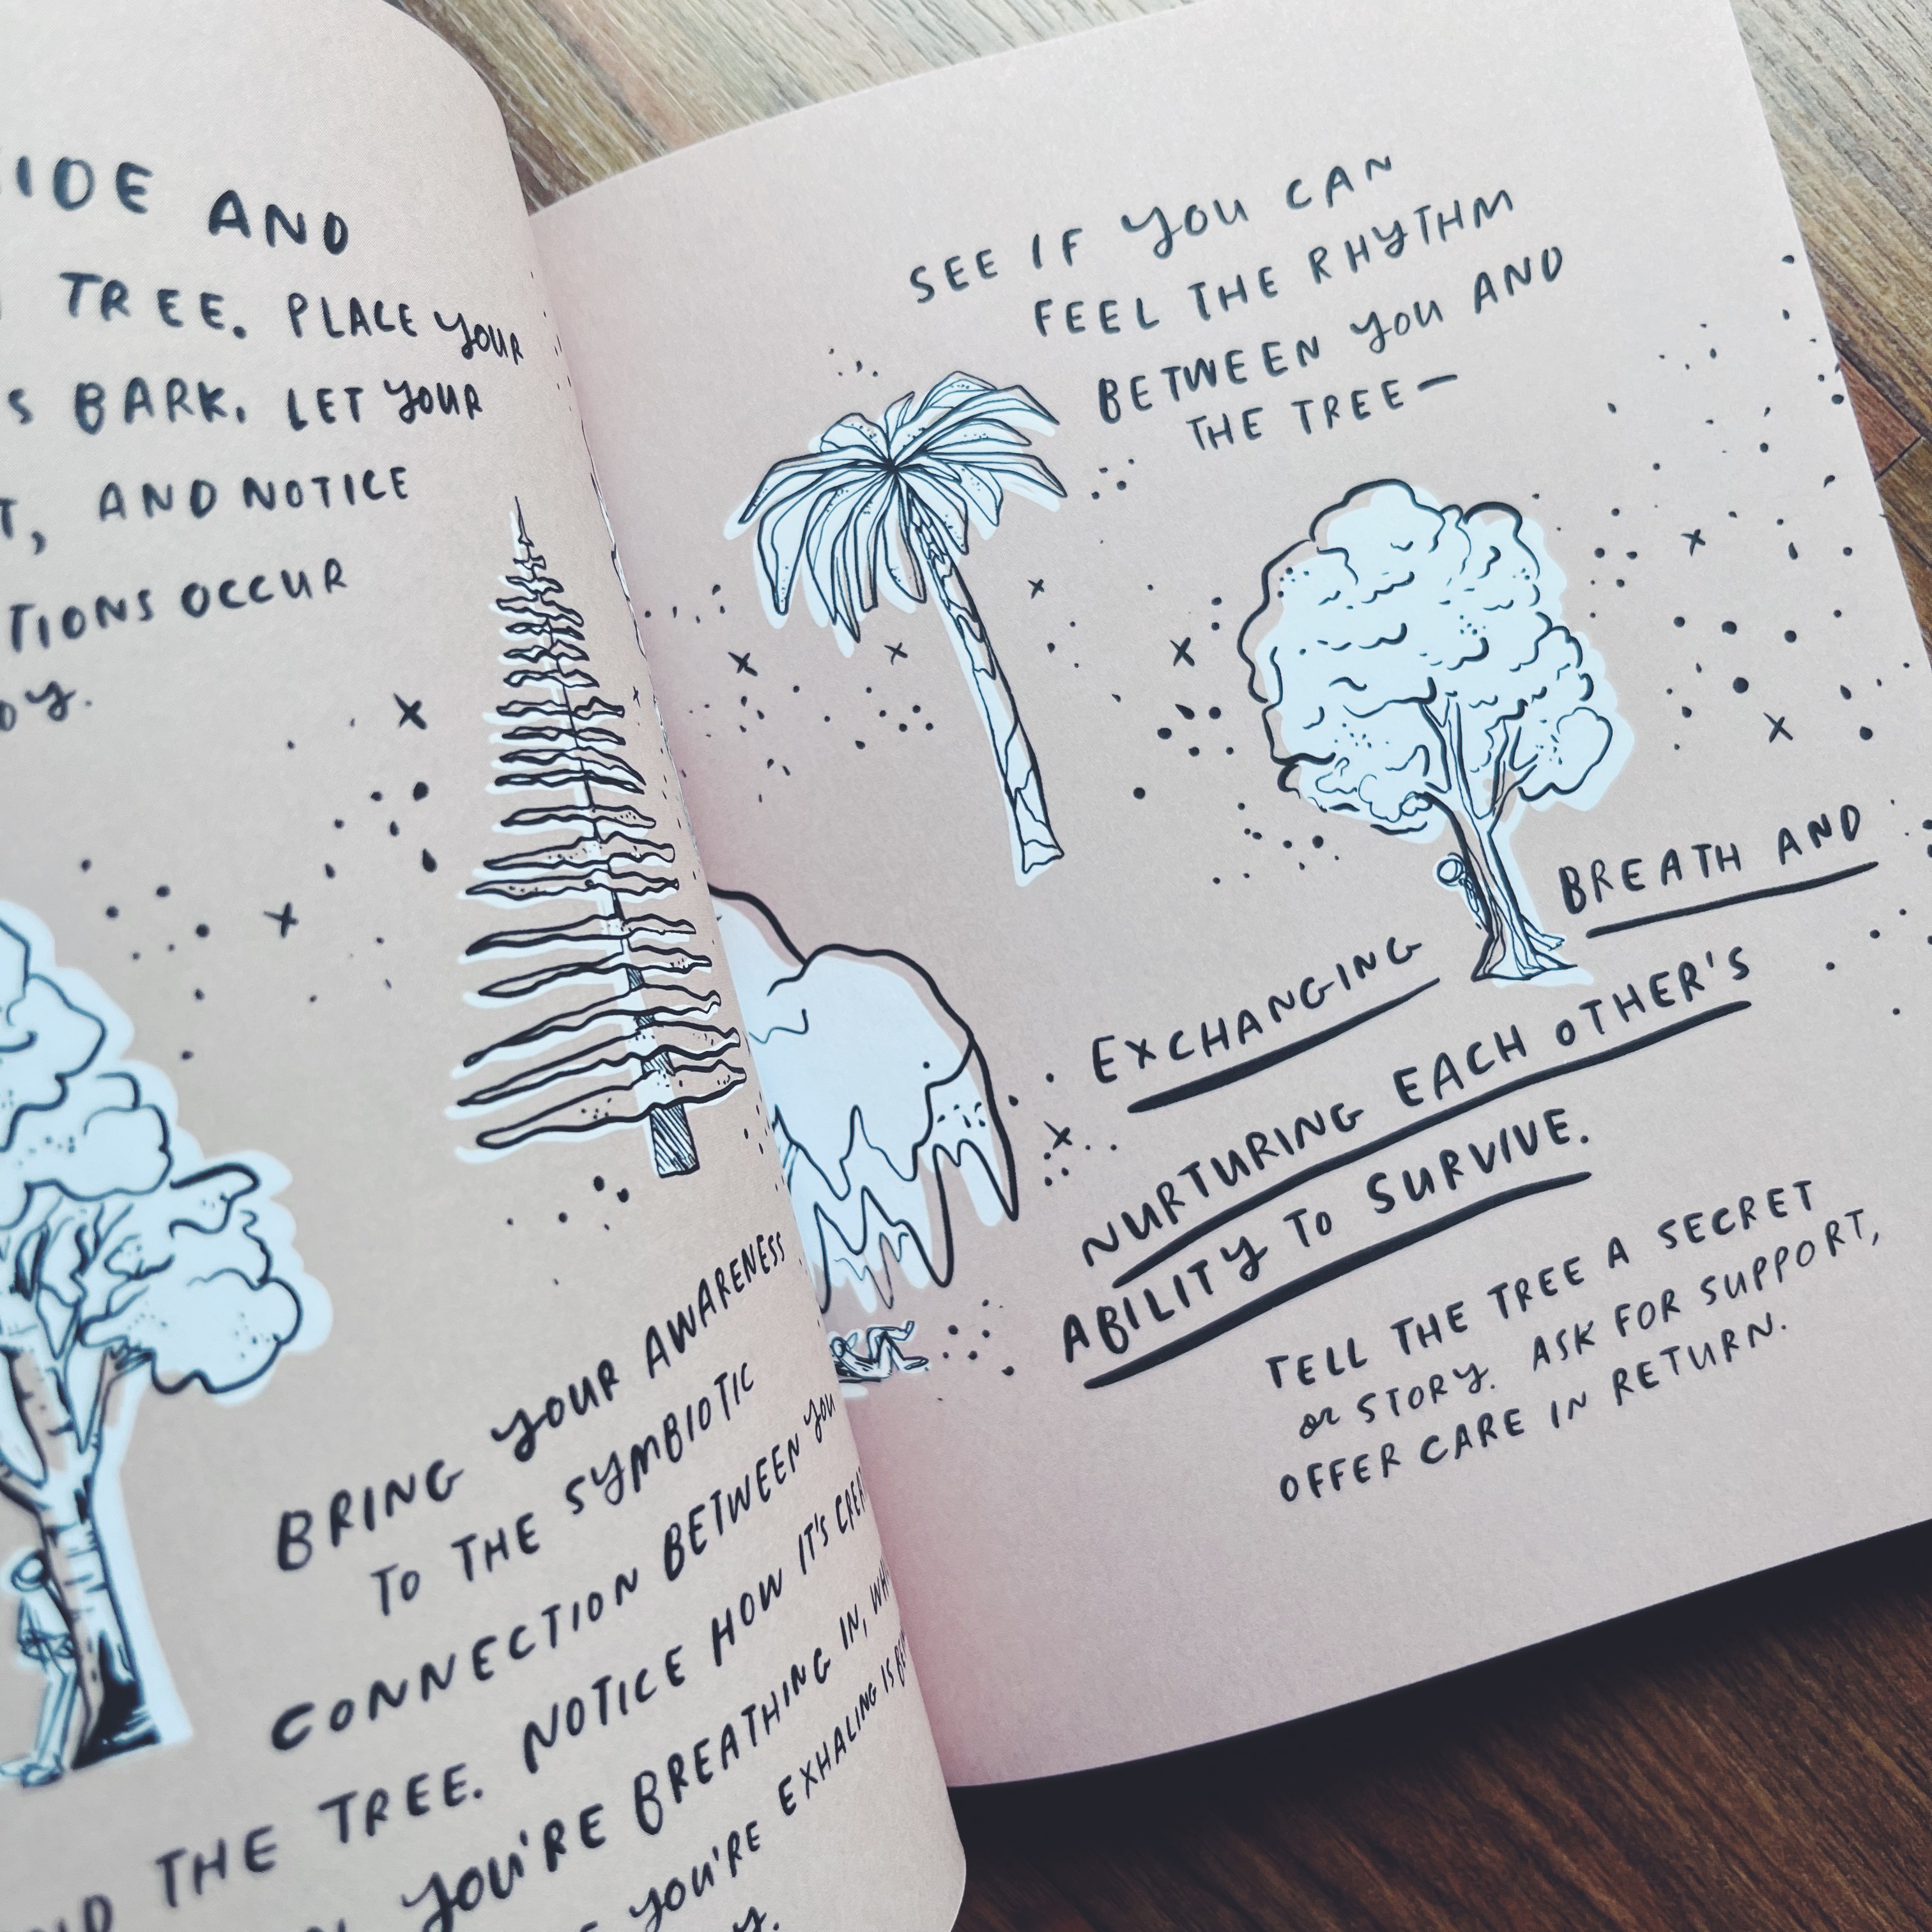 AND
TREE. PLACE YOUR
BARK. LET YOUR
AND NOTICE
OCCUR
BRING YOUR AWARENESS
TO THE SYMBIOTIC
CONNECTION BETWEEN YOU
THE TREE. NOTICE HOW IT'S
YOU'RE BREATHING IN,
YOU'RE EXHALING IS
SEE IF YOU CAN
FEEL THE RHYTHM
BETWEEN YOU AND
THE TREE—
EXCHANGING BREATH AND
NURTURING EACH OTHER'S
ABILITY TO SURVIVE.
TELL THE TREE A SECRET
OR STORY. ASK FOR SUPPORT,
OFFER CARE IN RETURN.